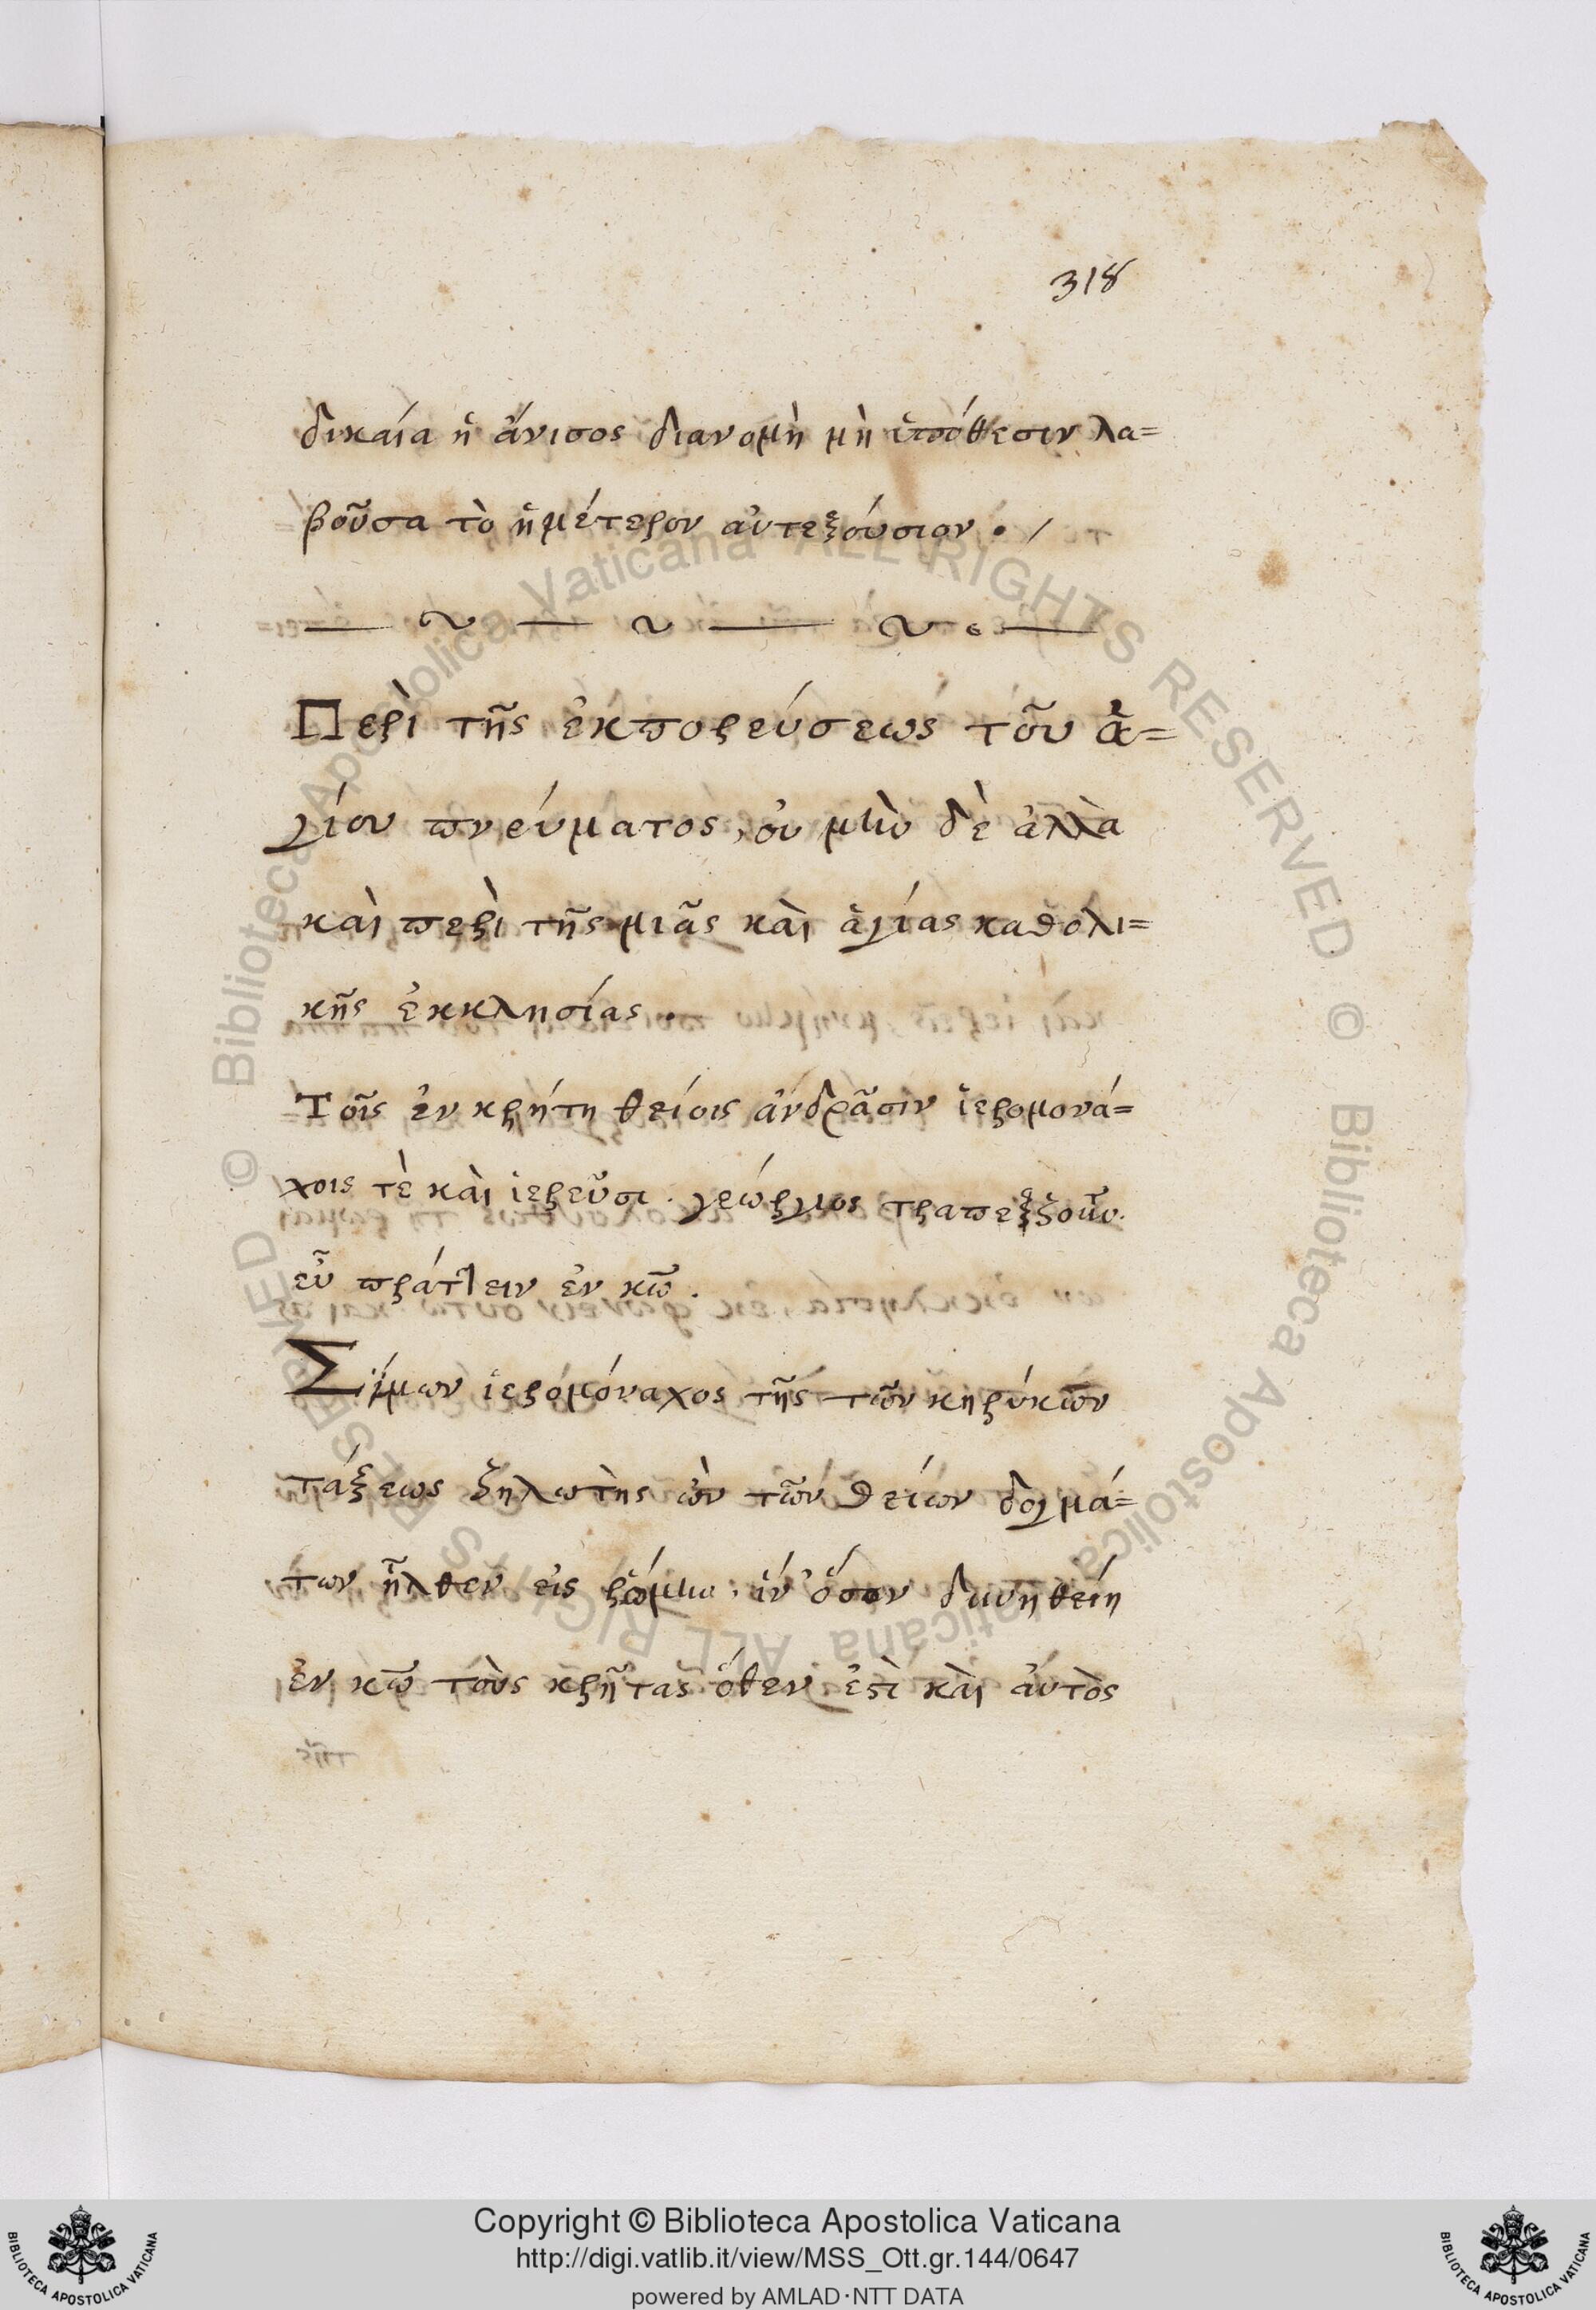 318
δικαία ἡ ἄνισος διανομὴ μὴ ὑπόθεσιν λα=
βοῦσα τὸ ἡμέτερον αὐτεξούσιον . /
Περὶ τῆς ἐκπορεύσεως τοῦ ἁ=
γίου πνεύματος, οὐ μὴν δὲ ἀλλὰ
καὶ περὶ τῆς μιᾶς καὶ ἁγίας καθολι=
κῆς ἐκκλησίας .
Τοῖς ἐν κρήτη θείοις ἀνδρᾶσιν ἱερομονά=
χοις τὲ καὶ ἱερεῦσι . γεώργιος
εὖ πράττειν ἐν κῶ .
Σίμων ἱερομόναχος τῆς τῶν κηρύκων
τάξεως ζηλωτὴς ὢν τῶν θείων δογμά=
των ἦλθεν εἰς ῥώμην, ἵν' ὅσον δυνηθείη
ἐν κῶ τοὺς κρῆτας ὅθεν ἐστὶ καὶ αὐτὸς
Copyright © Biblioteca Apostolica Vaticana
http://digi.vatlib.it/view/MSS_Ott.gr.144/0647
powered by AMLAD·NTT DATA
BIBLIOTECA APOSTOLICA VATICANA
BIBLIOTECA APOSTOLICA VATICANA
© Biblioteca Apostolica Vaticana ALL RIGHTS RESERVED
© Biblioteca Apostolica Vaticana ALL RIGHTS RESERVED